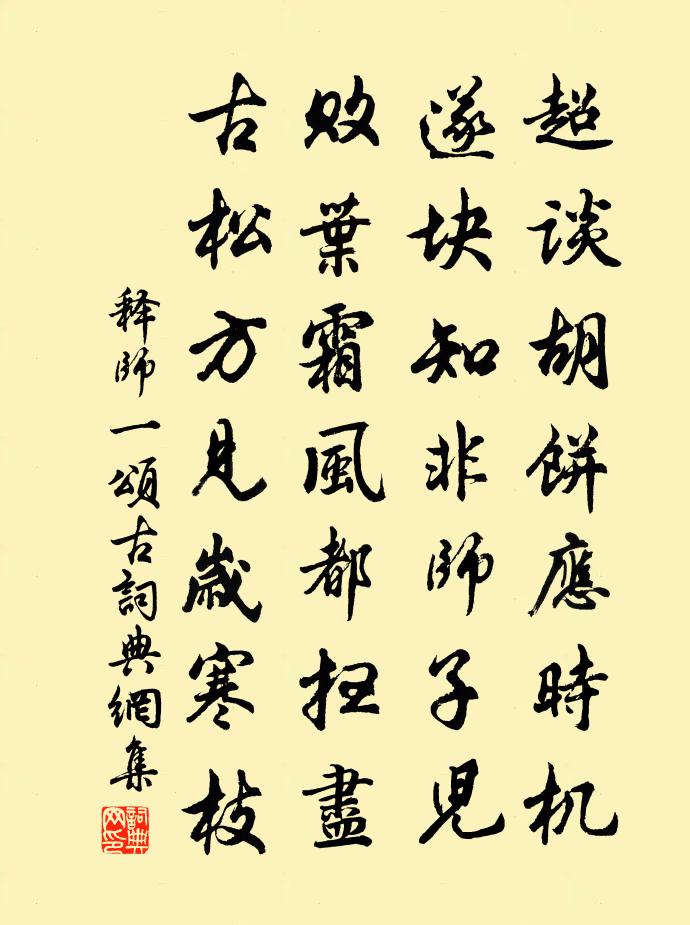 超谈胡餅應時机
遂块知非師子児
败葉霜風都扫盡
古松方見歲寒枝
释師一頌古詞典網集
詞典网印